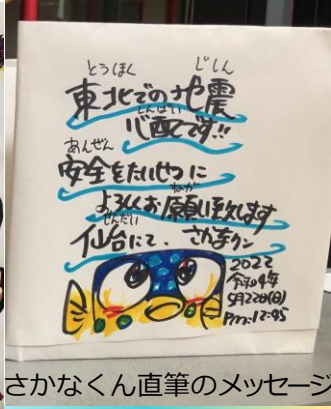 とうほく じしん
東北での地震
しんぱい
心配です!!
あんぜん
安全をたいせつに
ねが
よろしくお願い致します
せんだい
仙台にて、さかなクン
2022
令和4年
5月22日(日)
PM:12:45
さかなくん直筆のメッセージ